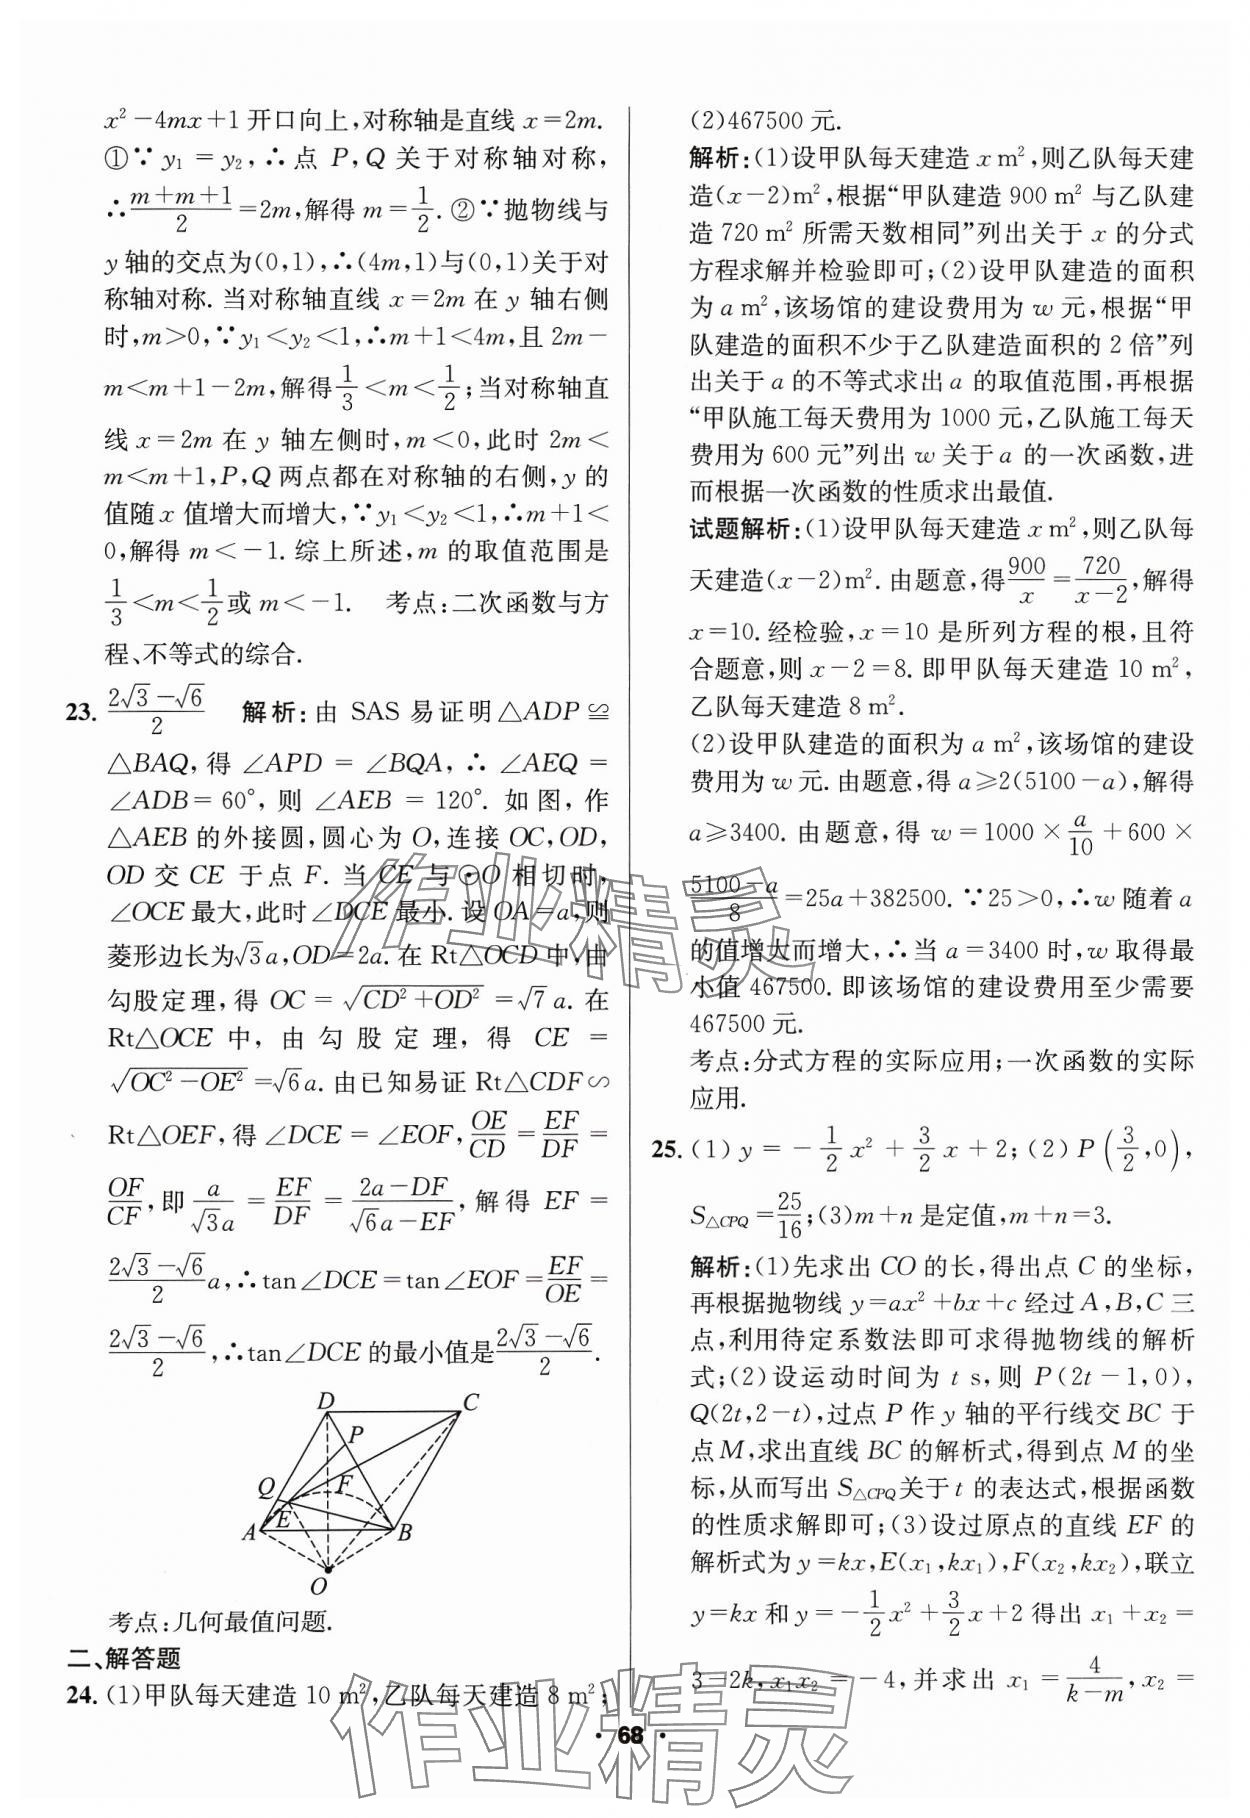 x²－4mx＋1 开口向上,对称轴是直线 x＝2m.
①∵ y₁ ＝ y₂, ∴ 点 P,Q 关于对称轴对称,
∴(m＋m＋1)/2＝2m,解得 m＝1/2. ②∵抛物线与
y 轴的交点为(0,1),∴(4m,1)与(0,1)关于对
称轴对称. 当对称轴直线 x＝2m 在 y 轴右侧
时,m＞0,∵y₁＜y₂＜1,∴m＋1＜4m,且 2m－
m＜m＋1－2m,解得1/3＜m＜1/2;当对称轴直
线 x＝2m 在 y 轴左侧时,m＜0,此时 2m＜
m＜m＋1,P,Q 两点都在对称轴的右侧,y 的
值随 x 值增大而增大,∵y₁＜y₂＜1,∴m＋1＜
0,解得 m＜－1. 综上所述,m 的取值范围是
1/3＜m＜1/2或 m＜－1. 考点:二次函数与方
程、不等式的综合.
23. (2√3－√6)/2 解析:由 SAS 易证明△ADP≌
△BAQ,得 ∠APD ＝ ∠BQA, ∴ ∠AEQ ＝
∠ADB＝ 60°, 则 ∠AEB ＝ 120°. 如图,作
△AEB 的外接圆,圆心为 O,连接 OC,OD,
OD 交 CE 于点 F. 当 CE 与⊙O 相切时,
∠OCE 最大,此时∠DCE 最小. 设 OA＝a,则
菱形边长为√3a,OD＝2a. 在 Rt△OCD 中,由
勾股定理,得 OC ＝ √(CD²＋OD²) ＝√7a. 在
Rt△OCE 中, 由 勾 股 定 理, 得 CE ＝
√(OC²－OE²)＝√6a. 由已知易证 Rt△CDF∽
Rt△OEF,得 ∠DCE ＝ ∠EOF, OE/CD ＝ EF/DF ＝
OF/CF,即 a/(√3a) ＝ EF/DF ＝ (2a－DF)/(√6a－EF),解得 EF ＝
(2√3－√6)/2 a,∴tan∠DCE＝tan∠EOF＝EF/OE＝
(2√3－√6)/2,∴tan∠DCE 的最小值是(2√3－√6)/2.
D
C
P
Q
F
E
A
B
O
考点:几何最值问题.
二、解答题
24. (1)甲队每天建造 10 m²,乙队每天建造 8 m²;
(2)467500 元.
解析:(1)设甲队每天建造 x m²,则乙队每天建
造(x－2)m²,根据“甲队建造 900 m² 与乙队建
造 720 m² 所需天数相同”列出关于 x 的分式
方程求解并检验即可;(2)设甲队建造的面积
为 a m²,该场馆的建设费用为 w 元,根据“甲
队建造的面积不少于乙队建造面积的 2 倍”列
出关于 a 的不等式求出 a 的取值范围,再根据
“甲队施工每天费用为 1000 元,乙队施工每天
费用为 600 元”列出 w 关于 a 的一次函数,进
而根据一次函数的性质求出最值.
试题解析:(1)设甲队每天建造 x m²,则乙队每
天建造(x－2)m². 由题意,得900/x＝720/(x－2),解得
x＝10. 经检验,x＝10 是所列方程的根,且符
合题意,则 x－2＝8. 即甲队每天建造 10 m²,
乙队每天建造 8 m².
(2)设甲队建造的面积为 a m²,该场馆的建设
费用为 w 元. 由题意,得 a≥2(5100－a),解得
a≥3400. 由题意,得 w＝1000×a/10＋600×
(5100－a)/8＝25a＋382500. ∵25＞0,∴w 随着 a
的值增大而增大,∴当 a＝3400 时,w 取得最
小值 467500. 即该场馆的建设费用至少需要
467500 元.
考点:分式方程的实际应用;一次函数的实际
应用.
25. (1) y ＝－1/2 x²＋3/2 x＋2; (2) P(3/2,0),
S△CPQ＝25/16;(3)m＋n 是定值,m＋n＝3.
解析:(1)先求出 CO 的长,得出点 C 的坐标,
再根据抛物线 y＝ax²＋bx＋c 经过 A,B,C 三
点,利用待定系数法即可求得抛物线的解析
式;(2)设运动时间为 t s,则 P(2t－1,0),
Q(2t,2－t),过点 P 作 y 轴的平行线交 BC 于
点 M,求出直线 BC 的解析式,得到点 M 的坐
标,从而写出 S△CPQ关于 t 的表达式,根据函数
的性质求解即可;(3)设过原点的直线 EF 的
解析式为 y＝kx,E(x₁,kx₁),F(x₂,kx₂),联立
y＝kx 和 y＝－1/2x²＋3/2x＋2 得出 x₁＋x₂＝
3－2k,x₁x₂＝－4,并求出 x₁＝4/(k－m),x₂＝
· 68 ·
作业精灵
作业精灵